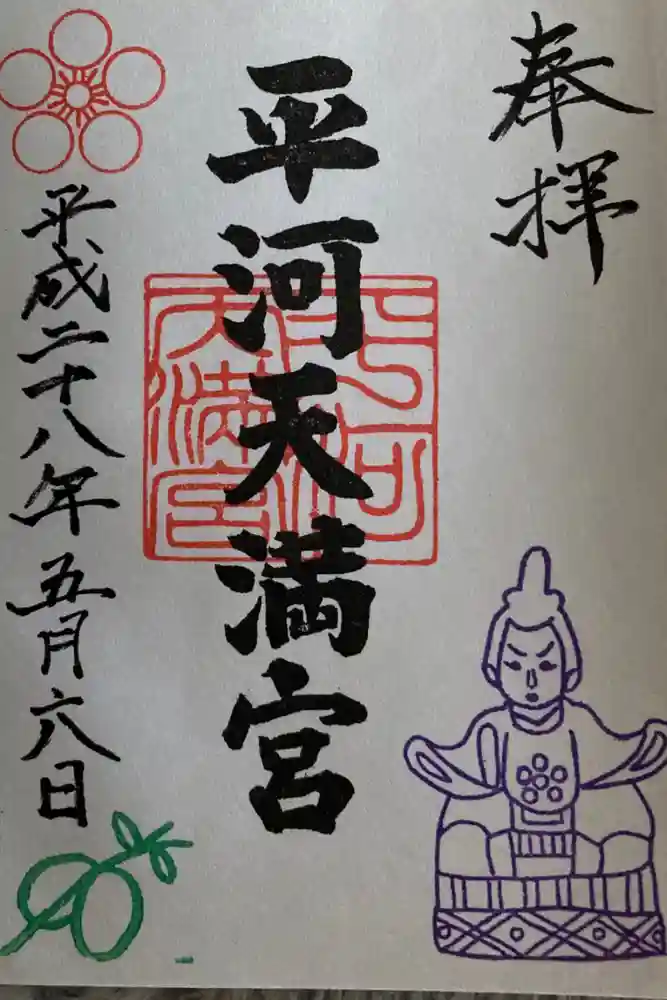 奉拝
平河天満宮
平河天満宮
平成二十八年五月六日